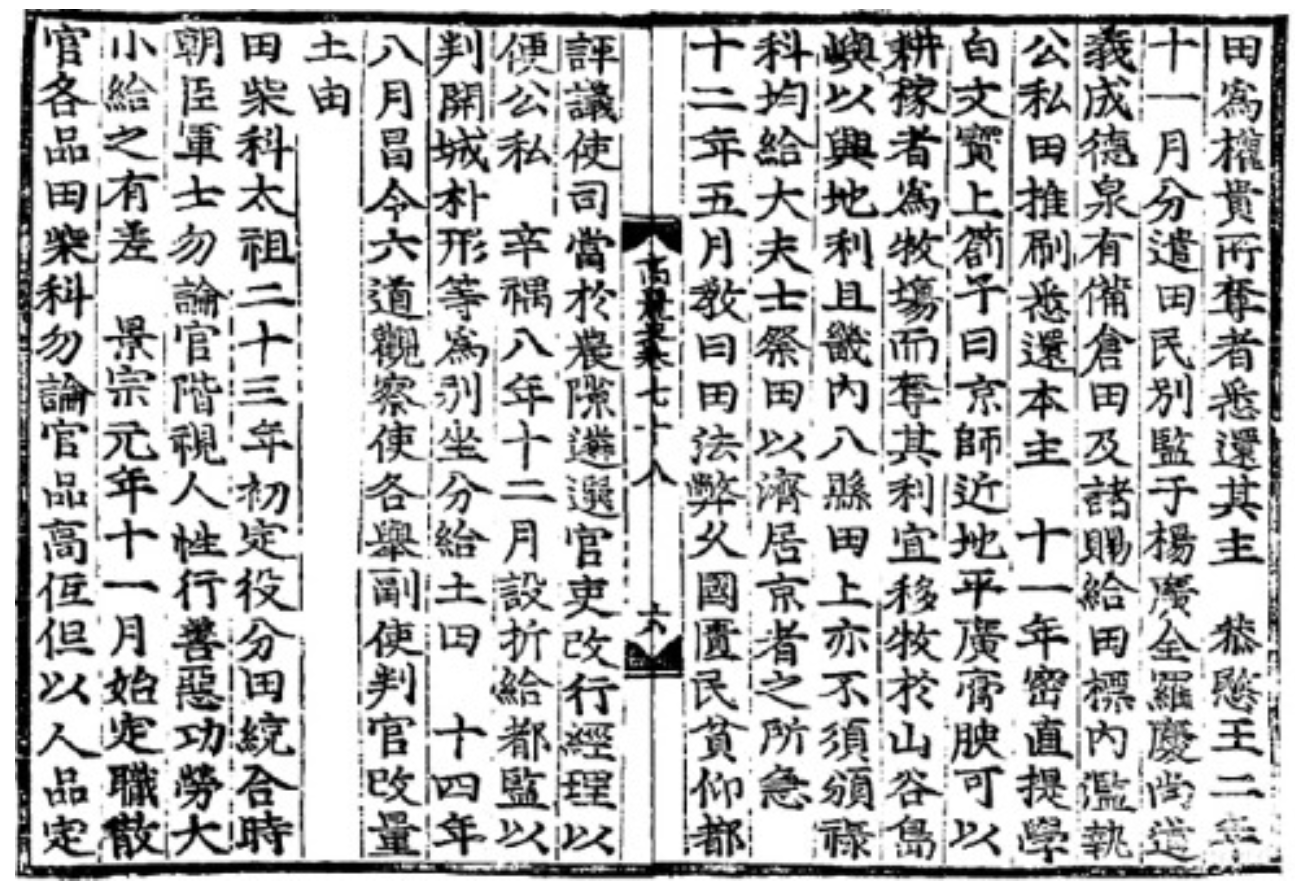 田爲權貴所奪者悉還其主　恭愍王二年
十一月分遣田民別監于楊廣全羅慶尚道
義成德泉有備倉田及諸賜給田標內濫執
公私田推刷悉還本主　十一年密直提學
白文寶上箚子曰京師近地平廣膏腴可以
耕稼者爲牧場而奪其利宜移牧於山谷島
嶼以興地利且畿內八縣田上亦不須頒祿
科均給大夫士祭田以濟居京者之所急
十二年五月敎曰田法弊久國匱民貧仰都
高麗史卷七十八　六
評議使司當於農隙遴選官吏改行經理以
便公私　辛禑八年十二月設折給都監以
判開城朴形等爲別坐分給土田　十四年
八月昌令六道觀察使各舉副使判官改量
土田
田柴科太祖二十三年初定役分田統合時
朝臣軍士勿論官階視人性行善惡功勞大
小給之有差　景宗元年十一月始定職散
官各品田柴科勿論官品高低但以人品定